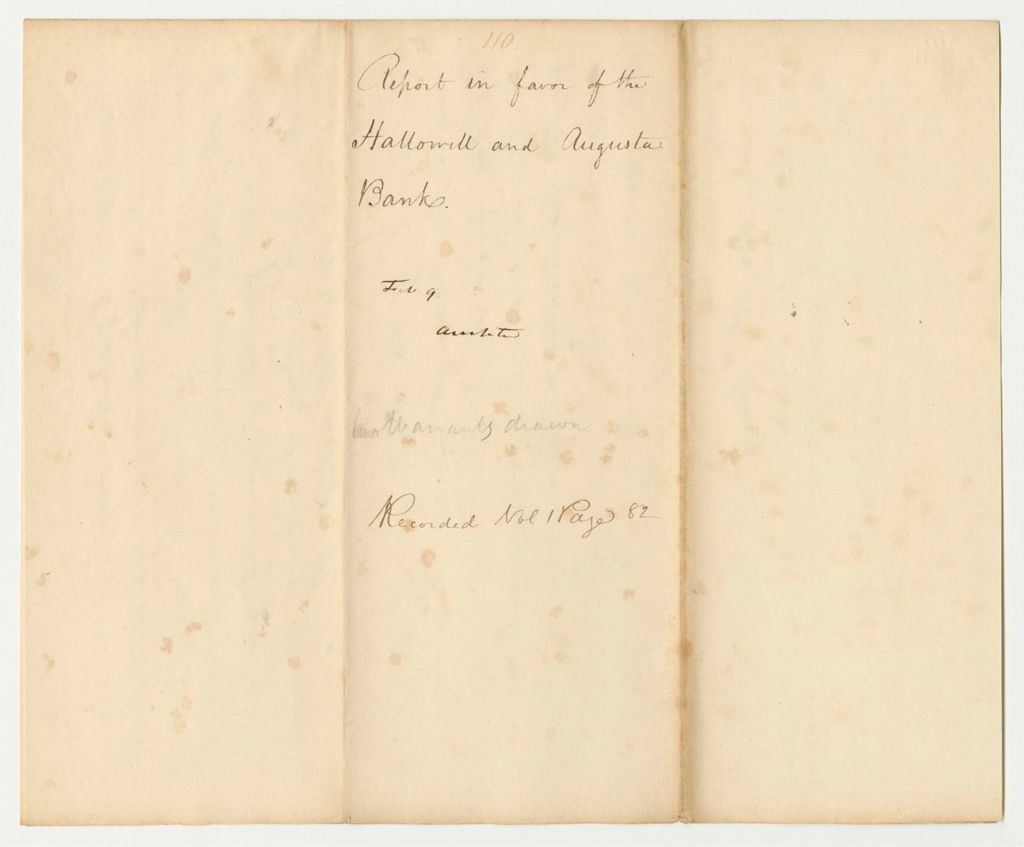 110
Report in favor of the
Hallowell and Augusta
Bank.
Feb. 9
Warrants drawn
Recorded Vol 1 Page 82